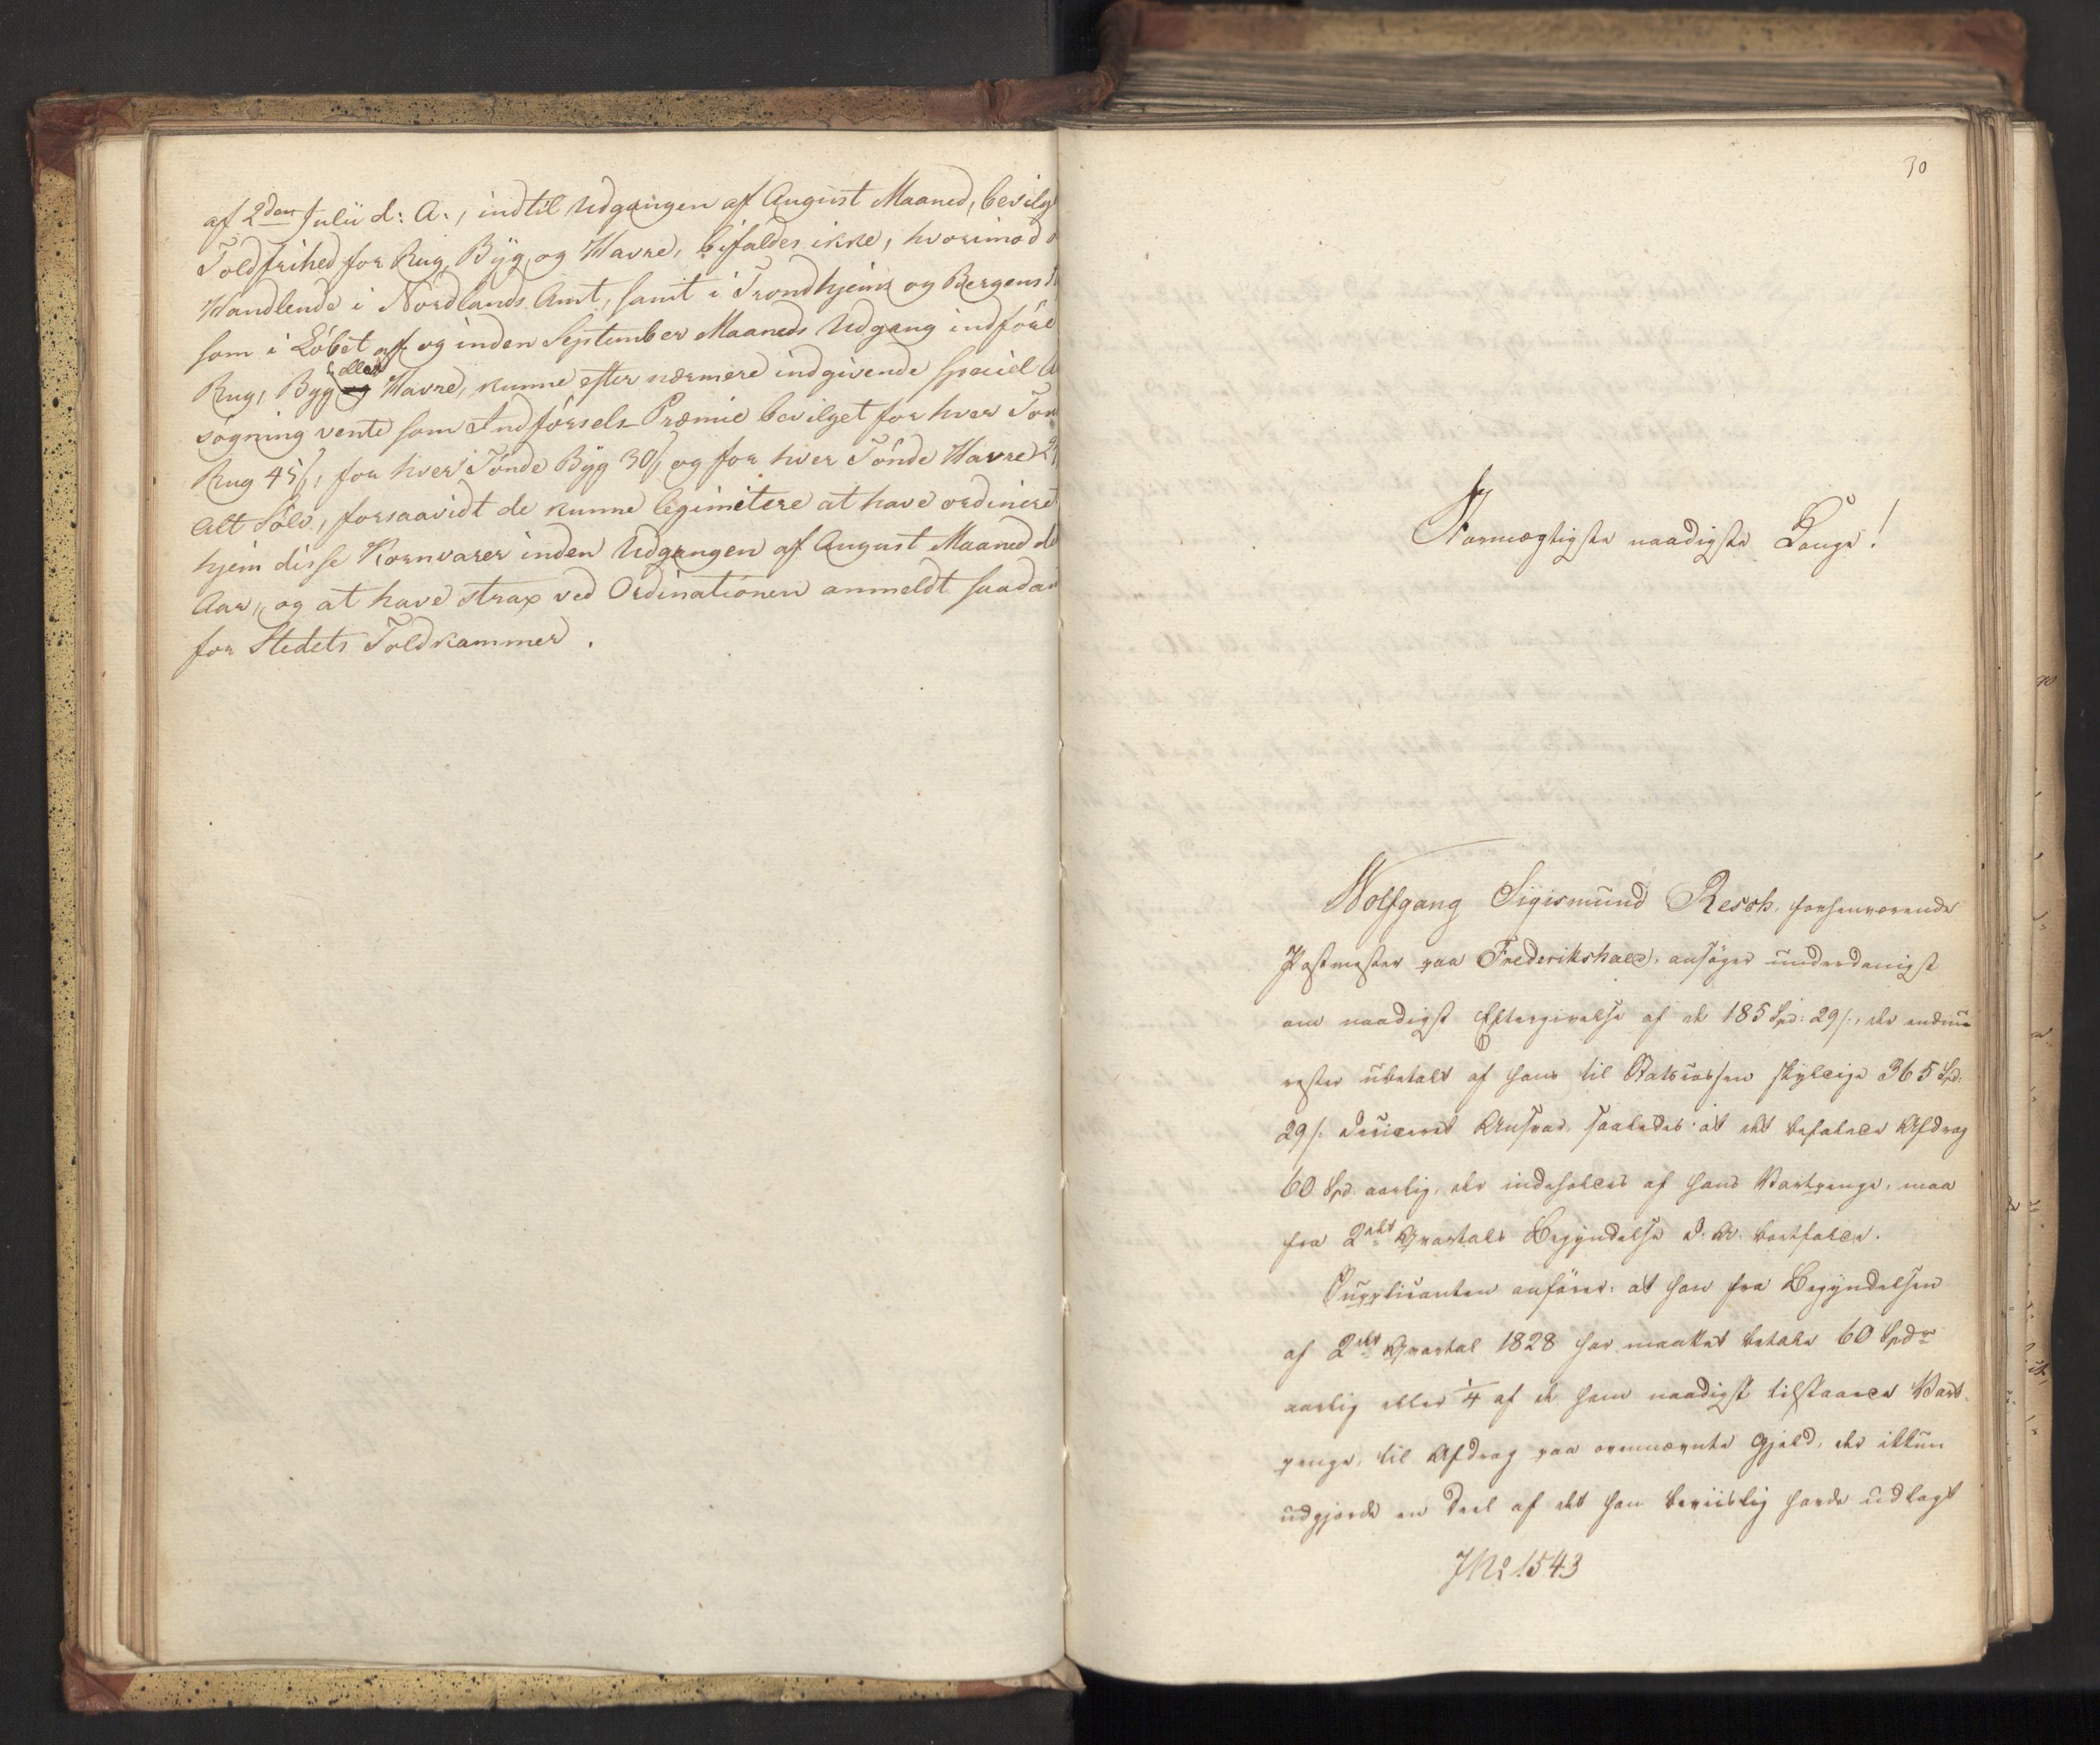 af 2den Julii d: A:, indtil Udgangen af August Maaned, bevilg
Toldfrihed for Rug, Byg, og Havre, bifaldes ikke, hvorimod d
Handlende i Nordlands Amt, samt i Trondhjems og Bergens
som i Löbet af og inden September Maaneds Udgang indföre
eller
Rug, Byg og Havre, kunne efter nærmere indgivende speciel A
søgning vente som Indförsels-Præmie bevilget for hver Tön
Rug 45 ß, for hver Tönde Byg 30 ß, og for hver Tönde Havre 2
Alt Sölv, forsaavidt de kunne legimitere at have ordineret
hjem disse Kornvarer inden Udgangen af August Maaned d
Aar, og at have strax ved Ordinationen anmeldt saadan
for Stedets Toldkammer.
30
Stormægtigste naadigste Konge!
Wolfgang Sigismund Resch, forhenværende
Postmester paa Frederikshald, ansöger underdanigst
om naadigst Eftergivelse af de 185 Spd: 29 ß:, der endnu
rester ubetalt af hans til Statscassen skyldige 365 Spd:
29 ß. deciceret Ansvar, saaledes at det befalede Afdrag
60 Spd. aarlig, der indeholdes af hans Vartpenge, maa
fra 2det Qvartals Begyndelse d. A. bortfalde.
Supplicanten anförer: at han fra Begyndelsen
af 2det Qvartal 1828 har maattet betale 60 Spdr
aarlig eller 1/4 af de ham naadigst tilstaaede Vart-
penge, til Afdrag paa ovennævnte Gjeld, der ikkun
udgjorde en Deel af det han beviislig havde udlagt
JNo 1543